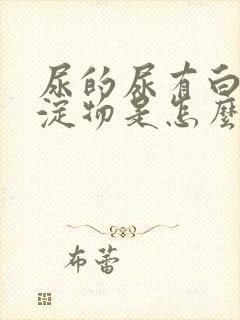 尿的尿有白
淀物是怎麼
布蕾